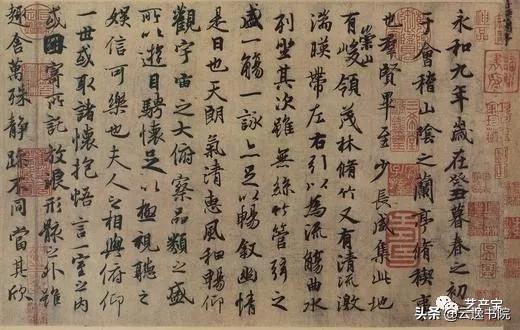 永和九年歲在癸丑暮春之初
于會稽山陰之蘭亭脩稧事
也羣賢畢至少長咸集此地
有崇山峻領茂林脩竹又有清流激
湍暎帶左右引以為流觴曲水
列坐其次雖無絲竹管弦之
盛一觴一詠亦足以暢敘幽情
是日也天朗氣清惠風和暢仰
觀宇宙之大俯察品類之盛
所以遊目騁懷足以極視聽之
娛信可樂也夫人之相與俯仰
一世或取諸懷抱悟言一室之內
或因寄所託放浪形骸之外雖
趣舍萬殊靜躁不同當其欣
艺产宝
头条 云逸书院